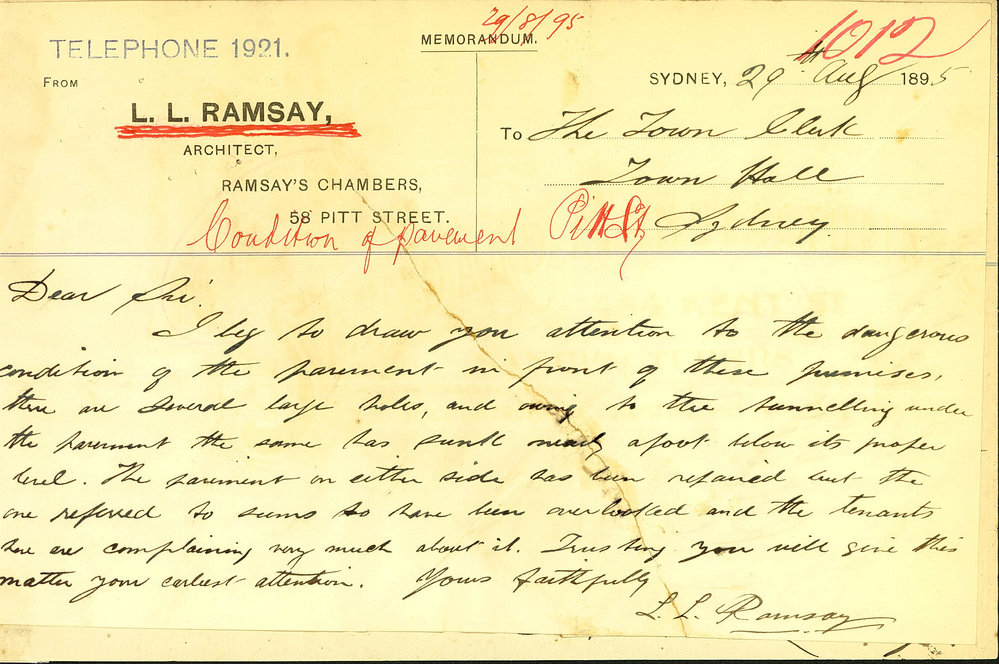 29/8/95
1012
TELEPHONE 1921.
MEMORANDUM.
FROM
SYDNEY, 29th Aug 1895
L. L. RAMSAY,
To The Town Clerk
ARCHITECT,
Town Hall
RAMSAY'S CHAMBERS,
Sydney.
58 PITT STREET.
Condition of pavement Pitt St
Dear Sir.
I beg to draw you attention to the dangerous
condition of the pavement in front of these premises,
there are several large holes, and owing to the tunnelling under
the pavement the same has sunk nearly a foot below its proper
level. The pavement on either side has been repaired but the
one referred to seems to have been overlooked and the tenants
here are complaining very much about it. Trusting you will give this
matter your earliest attention. Yours faithfully
L. L. Ramsay